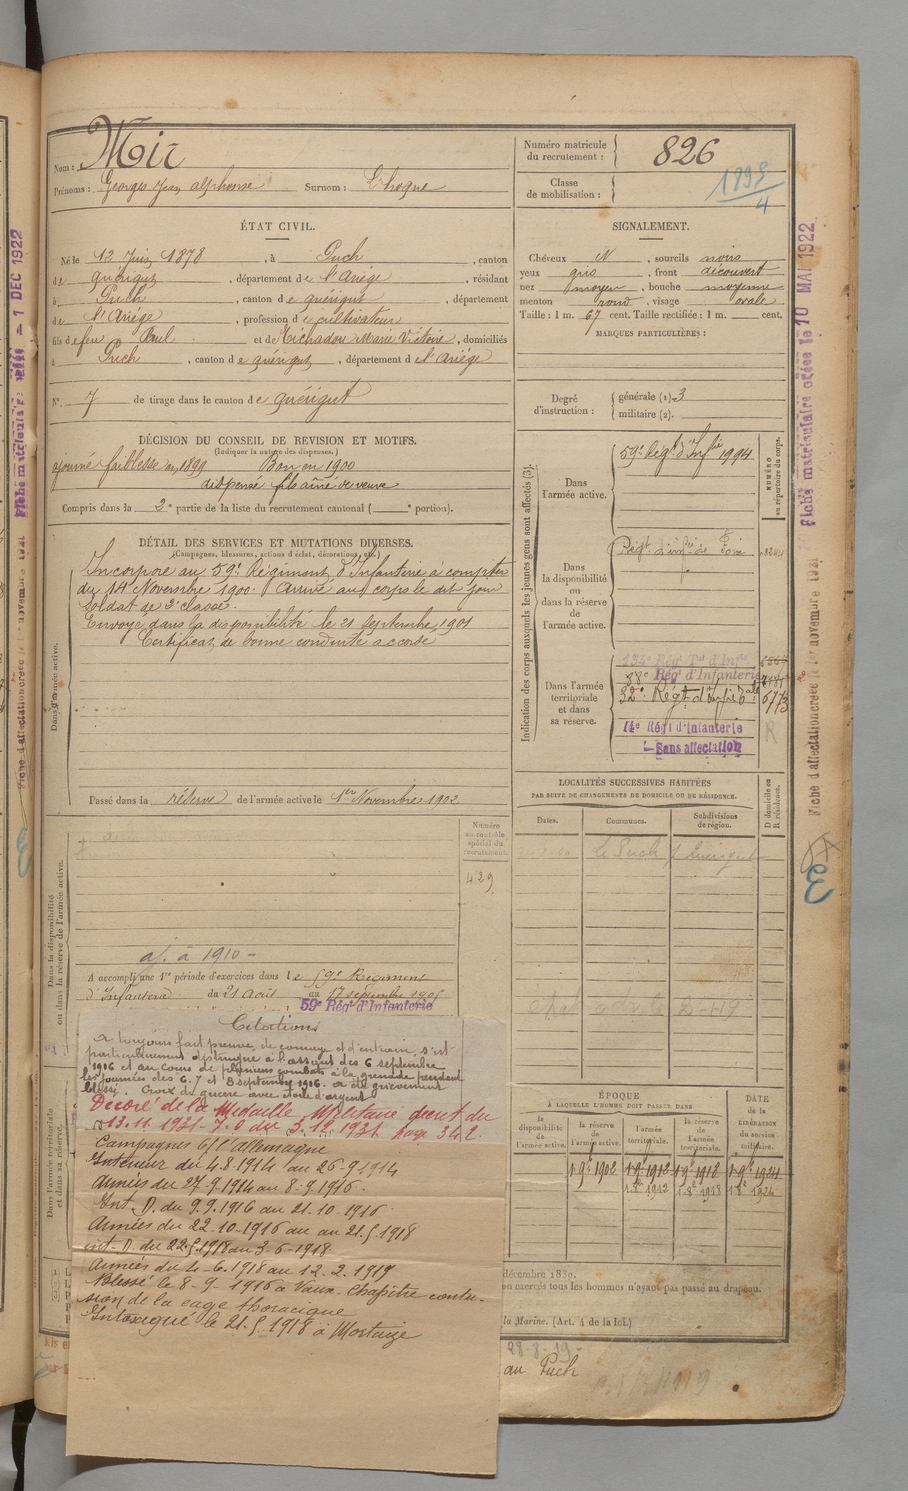 Nom : Mir
Prénoms : Georges Jean Alphonse Surnom :
Numéro matricule du recrutement : 826
Classe de mobilisation :
ÉTAT CIVIL.
Né le 12 Juin 1878, à Puch, canton
de Quérigut, département de l'Ariège, résidant
à Puch, canton de Quérigut, département
de l'Ariège, profession de cultivateur
fils de feu Paul et de Marie Victoire, domiciliés
à Puch, canton de Quérigut, département de l'Ariège
N° 7 de tirage dans le canton de Quérigut
SIGNALEMENT.
Cheveux N, sourcils noirs
yeux gris, front découvert
nez moyen, bouche moyenne
menton rond, visage ovale
Taille : 1 m. 67 cent. Taille rectifiée : 1 m. cent.
MARQUES PARTICULIÈRES :
Degré d'instruction : générale (1) 3
militaire (2).
DÉCISION DU CONSEIL DE REVISION ET MOTIFS.
(Indiquer la nature des dispenses.)
ajourné faiblesse en 1899 Bon en 1900
dispensé fils aîné de veuve
Compris dans la 2e partie de la liste du recrutement cantonal ( e portion).
DÉTAIL DES SERVICES ET MUTATIONS DIVERSES.
(Campagnes, blessures, actions d'éclat, décorations, etc.)
Incorporé au 59e Régiment d'Infanterie à compter
du 14 Novembre 1900. Arrivé au corps le dit jour
Soldat de 2e classe.
Envoyé dans la disponibilité le 21 Septembre 1901
Certificat de bonne conduite accordé
Dans l'armée active.
Passé dans la réserve de l'armée active le 1er Novembre 1902
Indication des corps auxquels les jeunes gens sont affectés (3).
NUMÉRO au répertoire du corps.
Dans l'armée active.
59e Régt d'Infie
Dans la disponibilité ou dans la réserve de l'armée active.
Régt d'infie de Foix
Dans l'armée territoriale et dans sa réserve.
134e Régt Tal d'Infie
88e Régt d'Infanterie
32e Régt d'Infie
14e Régt d'Infanterie
Sans affectation
LOCALITÉS SUCCESSIVES HABITÉES
PAR SUITE DE CHANGEMENTS DE DOMICILE OU DE RÉSIDENCE.
Dates. Communes. Subdivisions de région. D domicile ou R résidence.
le Puch Quérigut
Numéro au contrôle spécial du recrutement.
429
Dans la disponibilité ou dans la réserve de l'armée active.
à 1910
A accompli une 1re période d'exercices dans le 59e Régiment
d'Infanterie du 21 août au 17 septembre 1905
59e Régt d'Infanterie
Citations
A toujours fait preuve de courage et d'entrain, s'est
particulièrement distingué à l'assaut des 6 septembre
1916 et au cours de plusieurs combats à la grenade pendant
les journées des 6. 7 et 8 septembre 1916. a été grièvement
blessé. Croix de guerre avec étoile d'argent
Décoré de la Médaille Militaire décret du
13.11.1931. J.O du 3.12.1931. page 342.
Campagnes c/ l'allemagne
Intérieur du 4.8.1914 au 26-9-1914
Armées du 27-9-1914 au 8-9-1916.
Int. D. du 9.9.1916 au 21.10-1916.
Armées du 22-10-1916 au au 21.5.1918
int. D. du 22.5.1918 au 3-6-1918
Armées du 4-6.1918 au 12.2.1919
Blessé le 8-9-1916 à Vaux-Chapitre contu-
sion de la cage thoracique
Intoxiqué le 21.5.1918 à
ÉPOQUE
À LAQUELLE L'HOMME DOIT PASSER DANS
la disponibilité de l'armée active. la réserve de l'armée active. l'armée territoriale. la réserve de l'armée territoriale.
DATE de la LIBÉRATION du service militaire.
1. 9e 1902 1. 9e 1912 1. 9e 1918 1. 9e 1924
1. 8e 1912 1. 8e 1918 1. 8e 1924
Dans l'armée territoriale et dans sa réserve.
décembre 1889.
on exercés tous les hommes n'ayant pas passé au drapeau.
la Marine. (Art. 4 de la loi.)
28-8-19
au Puch
Fiche matriculaire créée le 10 MAI 1922
Fiche d'affectation créée le 1er novembre 1921
1 DEC 1922